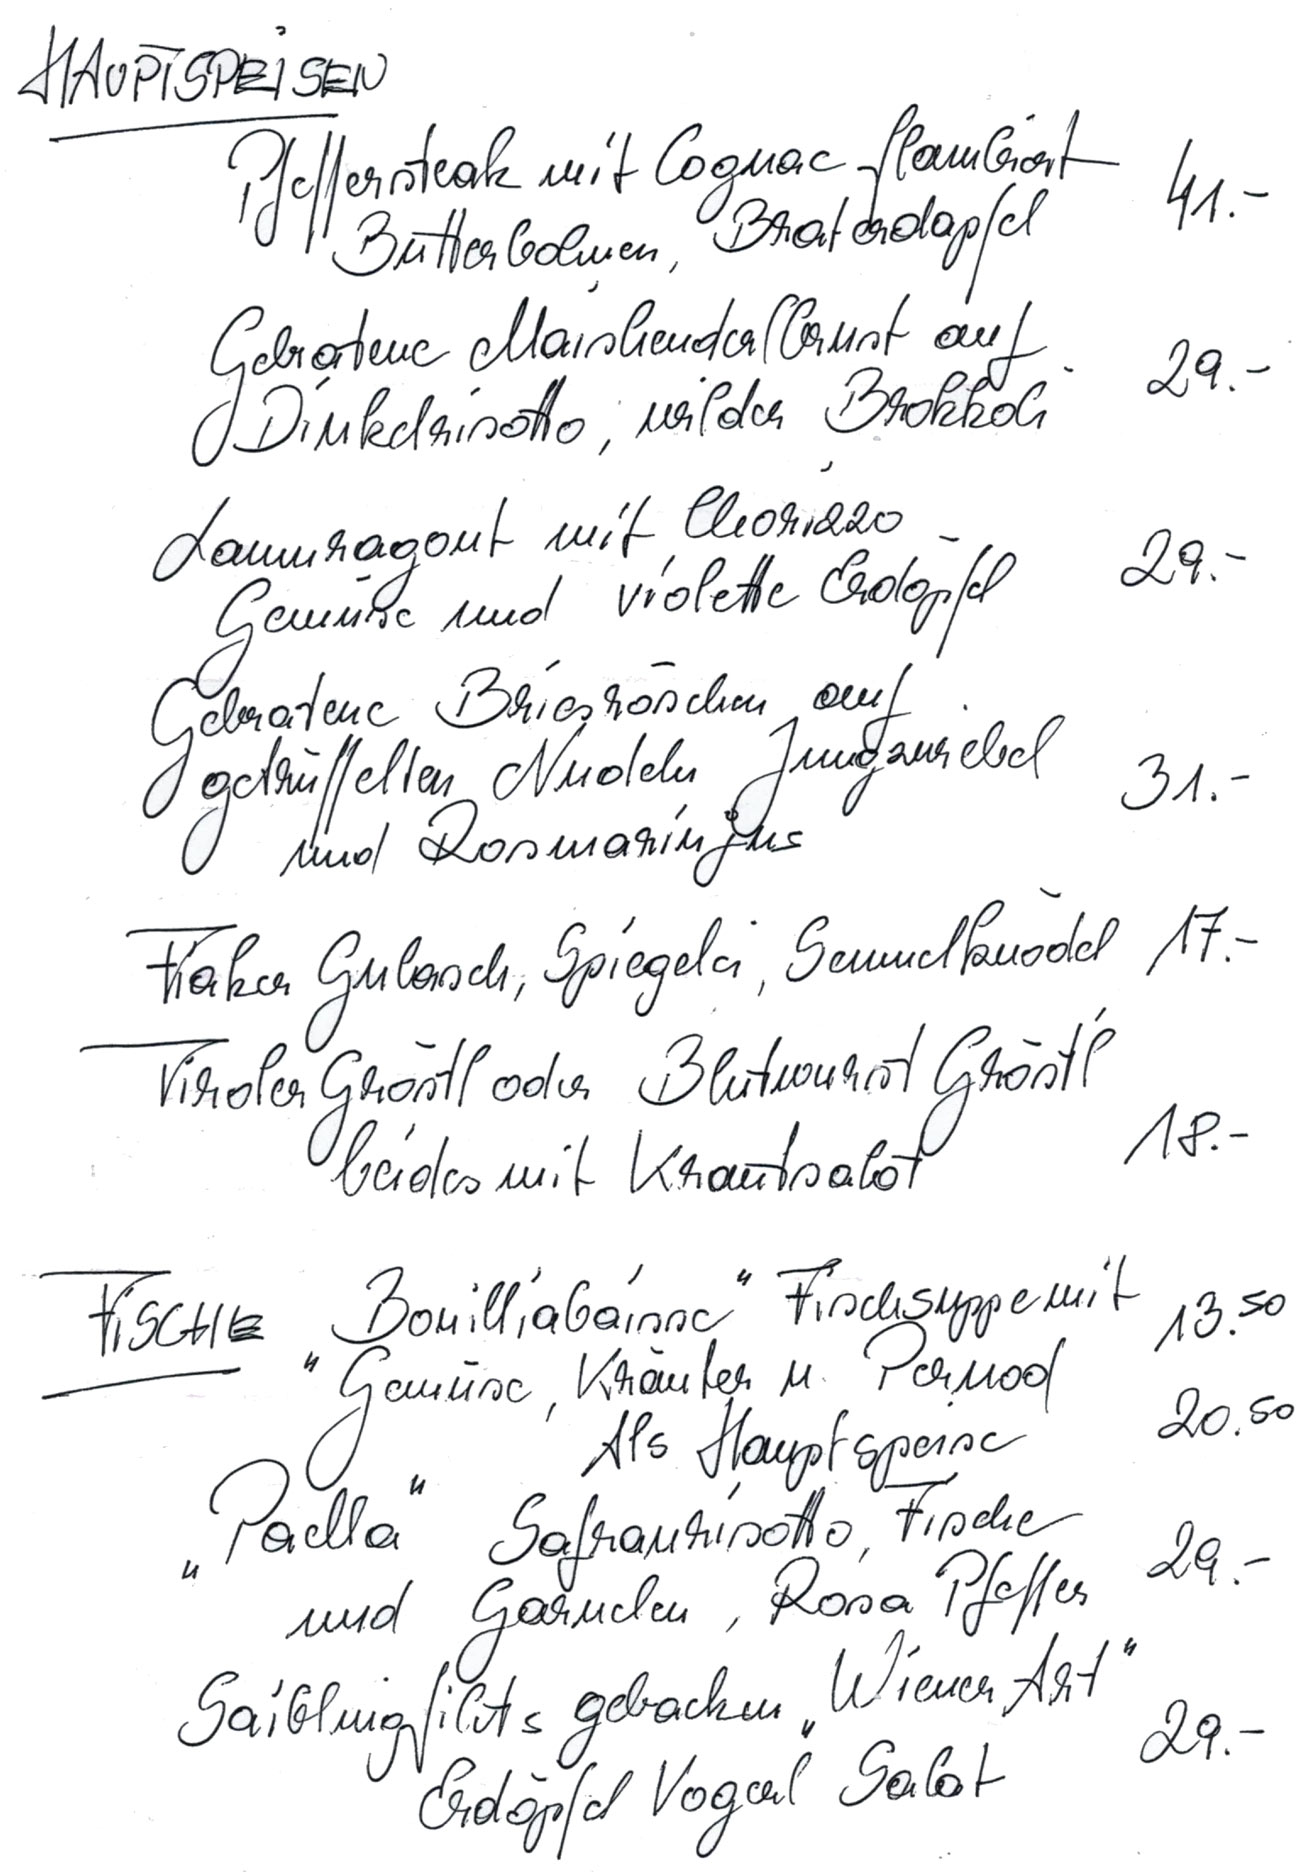 HAUPTSPEISEN
Pfeffersteak mit Cognac flambiert 41.-
Butterbohnen, Braterdäpfel
Gebratene Maishenderlbrust auf
Dinkelrisotto, wilder Brokkoli 29.-
Lammragout mit Chorizzo
Gemüse und violette Erdäpfel 29.-
Gebratene Briesröschen auf
getrüffelten Nudeln Jungzwiebel 31.-
und Rosmarinjus
Fiaker Gulasch, Spiegelei, Semmelknödel 17.-
Tiroler Gröstl oder Blutwurst Gröstl
beides mit Krautsalat 18.-
FISCHE "Bouilliabaisse" Fischsuppe mit 13.50
Gemüse, Kräuter u. Pernod
Als Hauptspeise 20.50
„Paella" Safranrisotto, Fische
und Garnelen, Rosa Pfeffer 29.-
Saiblingfilets gebacken „Wiener Art"
Erdäpfel Vogerl Salat 29.-